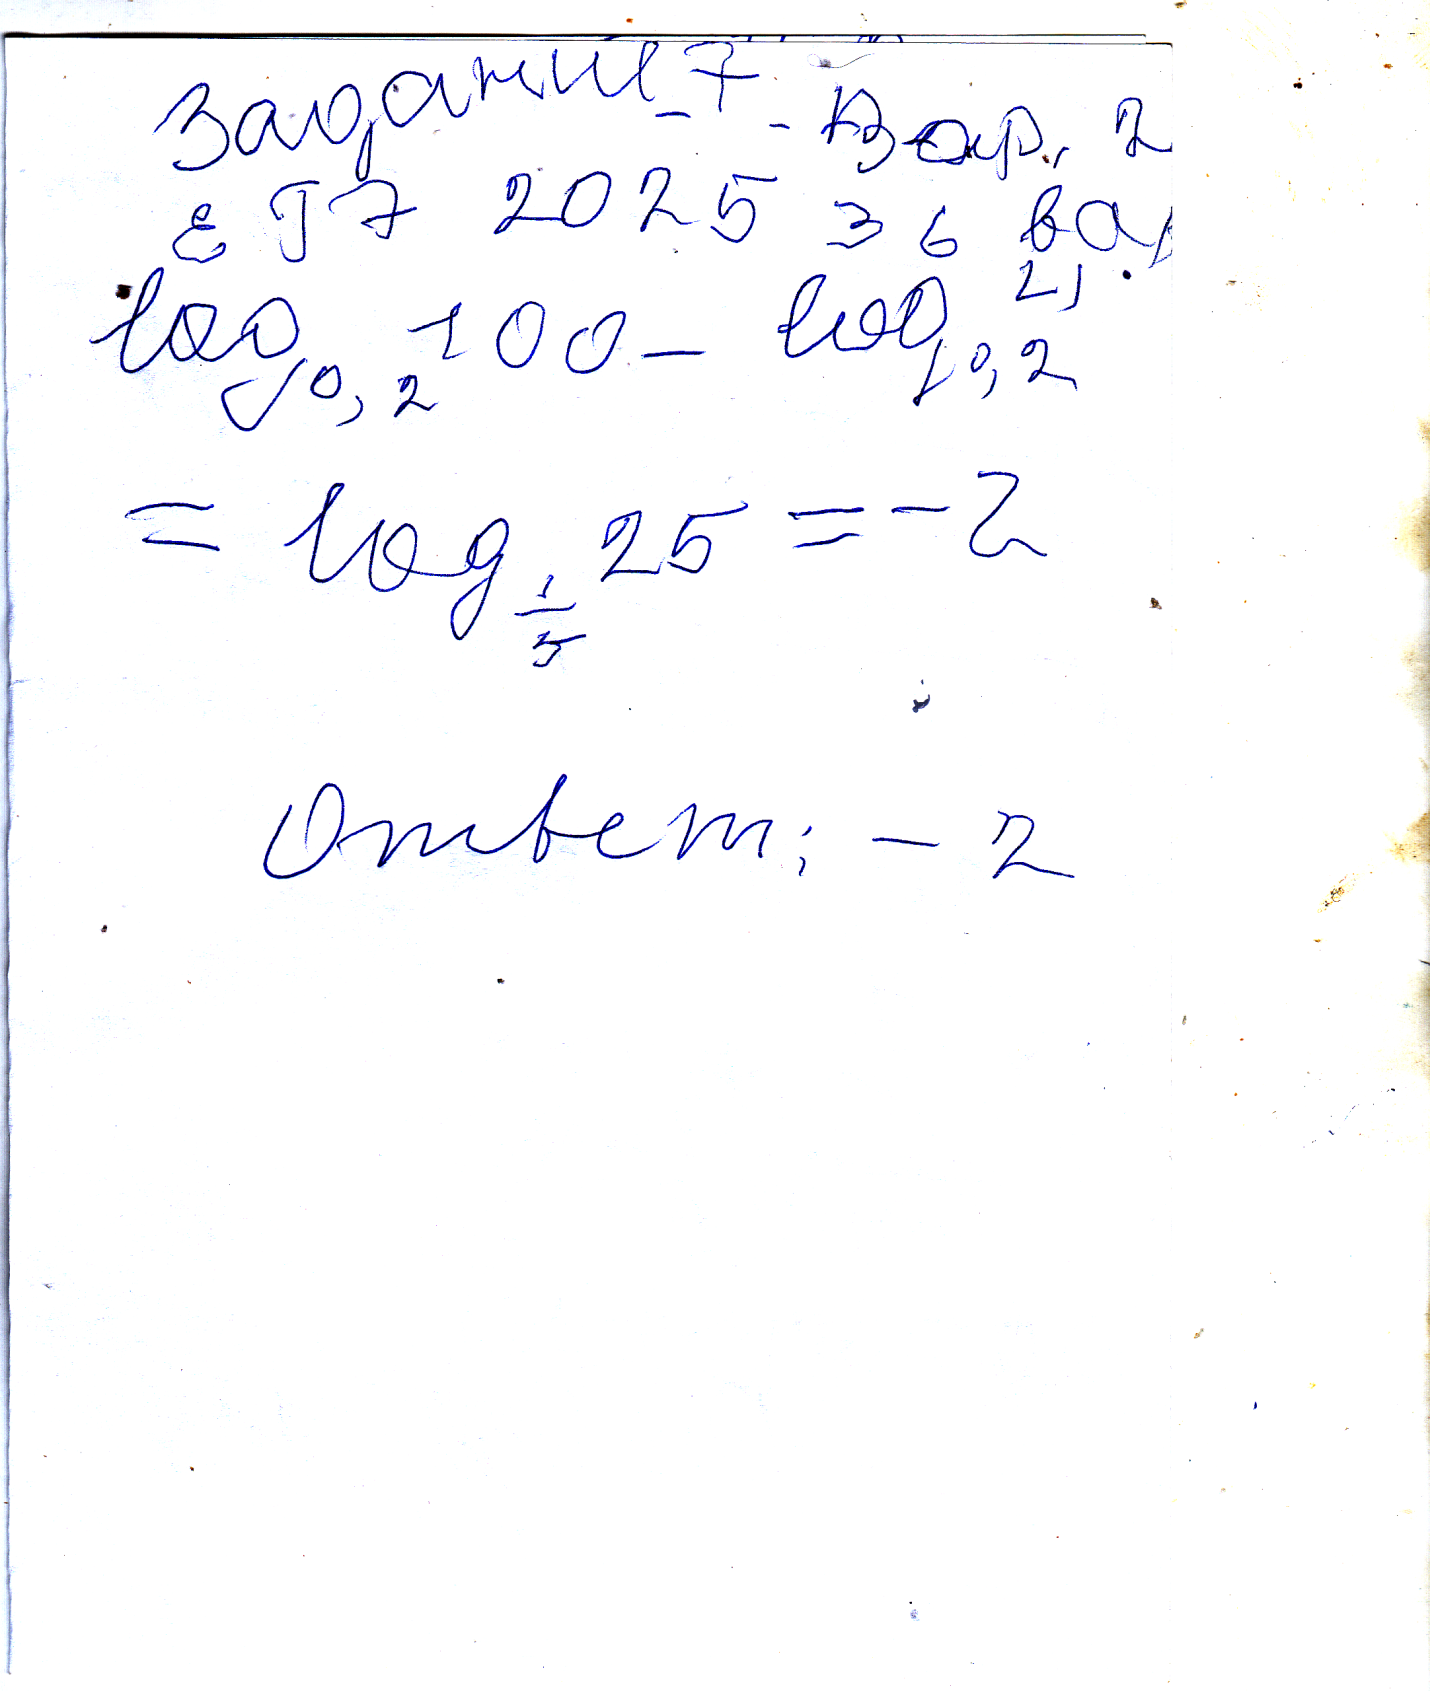 Задание 7 - Вар. 2
ЕГЭ 2025 36 вар
log₀,₂ 100 - log₀,₂ 4
= log 1/5 25 = -2
Ответ: - 2